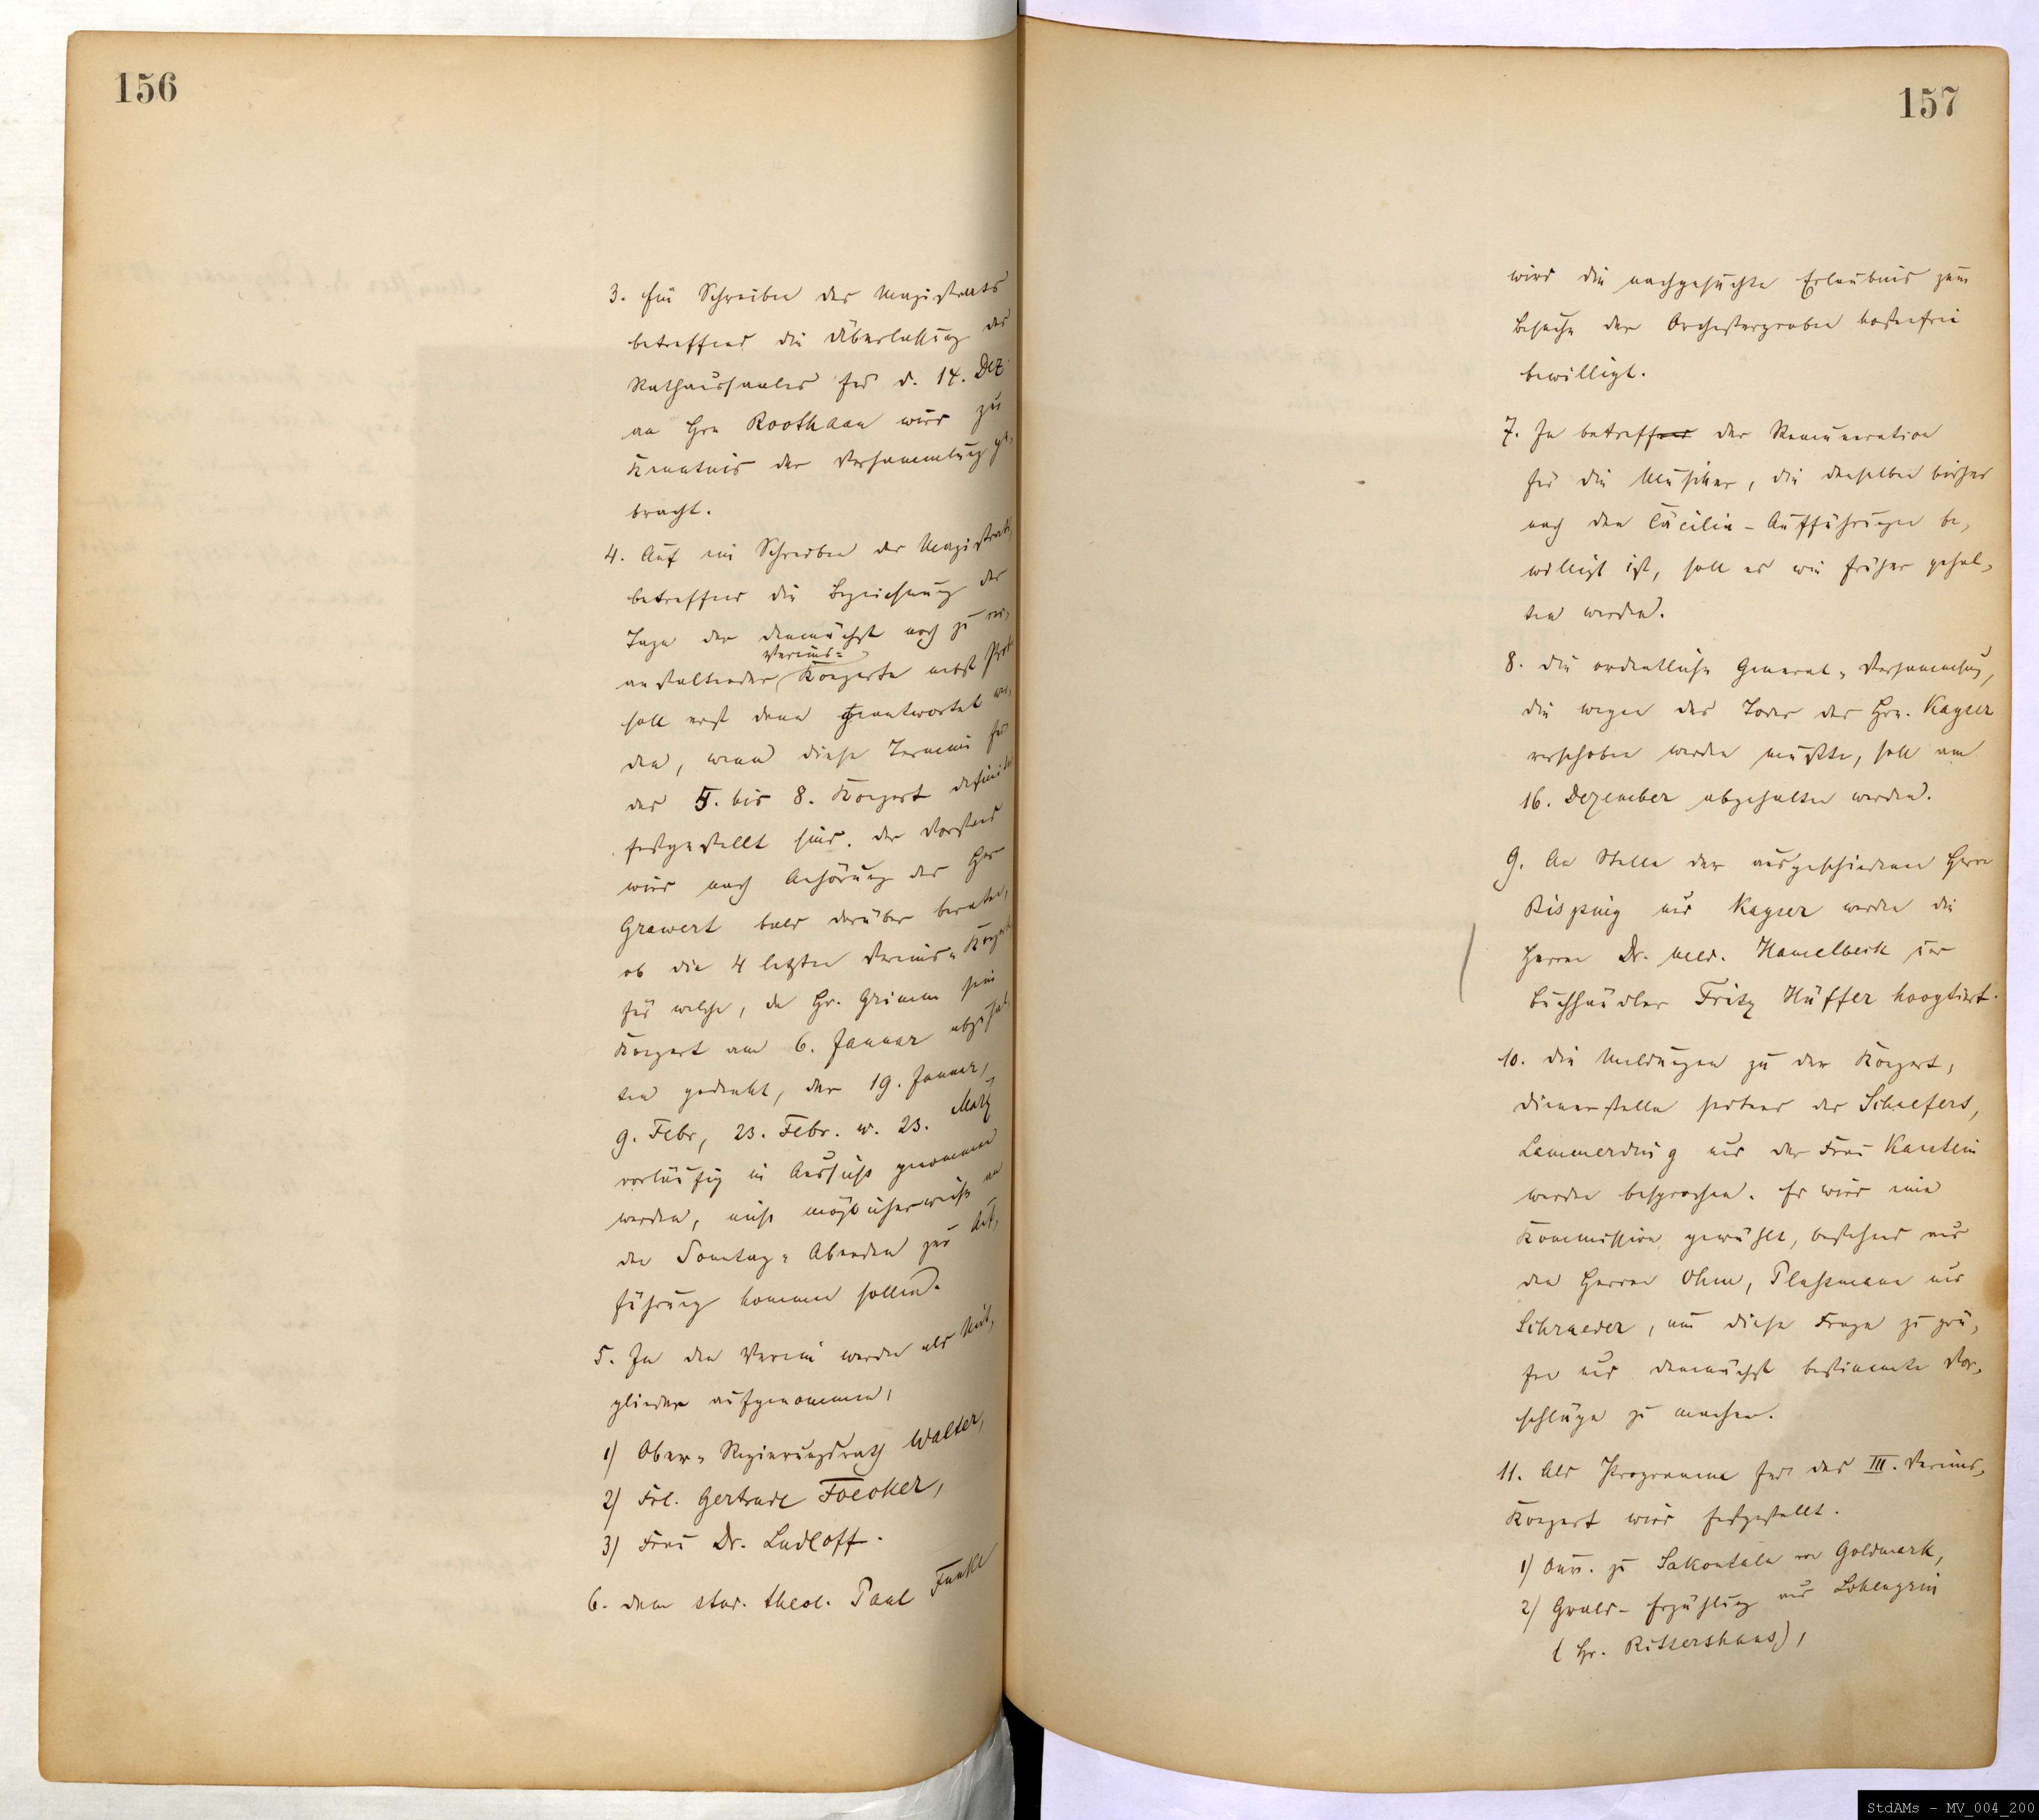 156
3. Ein Schreiben des Magistrats
betreffend die Überlassung des
Rathaussaales für d. 14. Dez.
an Hrn Roothaan wird zu
Kenntnis der Versammlung ge-
bracht.
4. Auf ein Schreiben des Magistrats,
betreffend die Bezeichnung der
Tage der demnächst noch zu ver-
anstaltenden Vereins= Konzerte nebst
soll erst dann geantwortet wer-
den, wenn diese Termine für
das 5. bis 8. Konzert definitiv
festgestellt sind. Der Vorstand
wird nach Anhörung des Hrn
Grawert bald darüber beraten,
ob die 4 letzten Vereins-Konzerte
für welche, da Hr. Grimm sein
Konzert am 6. Januar abzuhal-
ten gedenkt, der 19. Januar,
9. Febr, 23. Febr. u. 23. März
vorläufig in Aussicht genommen
werden, nicht möglicherweise an
den Sonntag-Abenden zur Auf-
führung kommen sollen.
5. In den Verein werden als Mit-
glieder aufgenommen,
1) Ober-Regierungsrath Walter,
2) Frl. Gertrude Foecker,
3) Frau Dr. Ludloff.
6. Dem stud. theol. Paul Funke
157
wird die nachgesuchte Erlaubnis zum
Besuche der Orchesterproben kostenfrei
bewilligt.
7. In betreffend der Remuneration
für die Musiker, die denselben bisher
nach den Cäcilia-Aufführungen be-
willigt ist, soll es wie früher gehal-
ten werden.
8. Die ordentliche General-Versammlung,
die wegen des Todes des Hrn. Kayser
verschoben werden mußte, soll am
16. Dezember abgehalten werden.
9. An Stelle der ausgeschiedenen Herrn
Bisping und Kayser werden die
Herren Dr. med. Hamelbeck und
Buchhändler Fritz Hüffer kooptiert.
10. Die Meldungen zu der Konzert-
dienerstelle seitens des Schaefers,
Lammerding und der Frau Kantein
werden besprochen. Es wird eine
Kommission gewählt, bestehend aus
den Herren Ohm, Plaßmann und
Schraeder, um diese Frage zu prü-
fen und demnächst bestimmte Vor-
schläge zu machen.
11. Als Programm für das III. Vereins-
Konzert wird festgestellt.
1) Ouv. zu Sakontala von Goldmark,
2) Grals-Erzählung aus Lohengrin
(Hr. Rittershaus),
StdAMs - MV_004_200